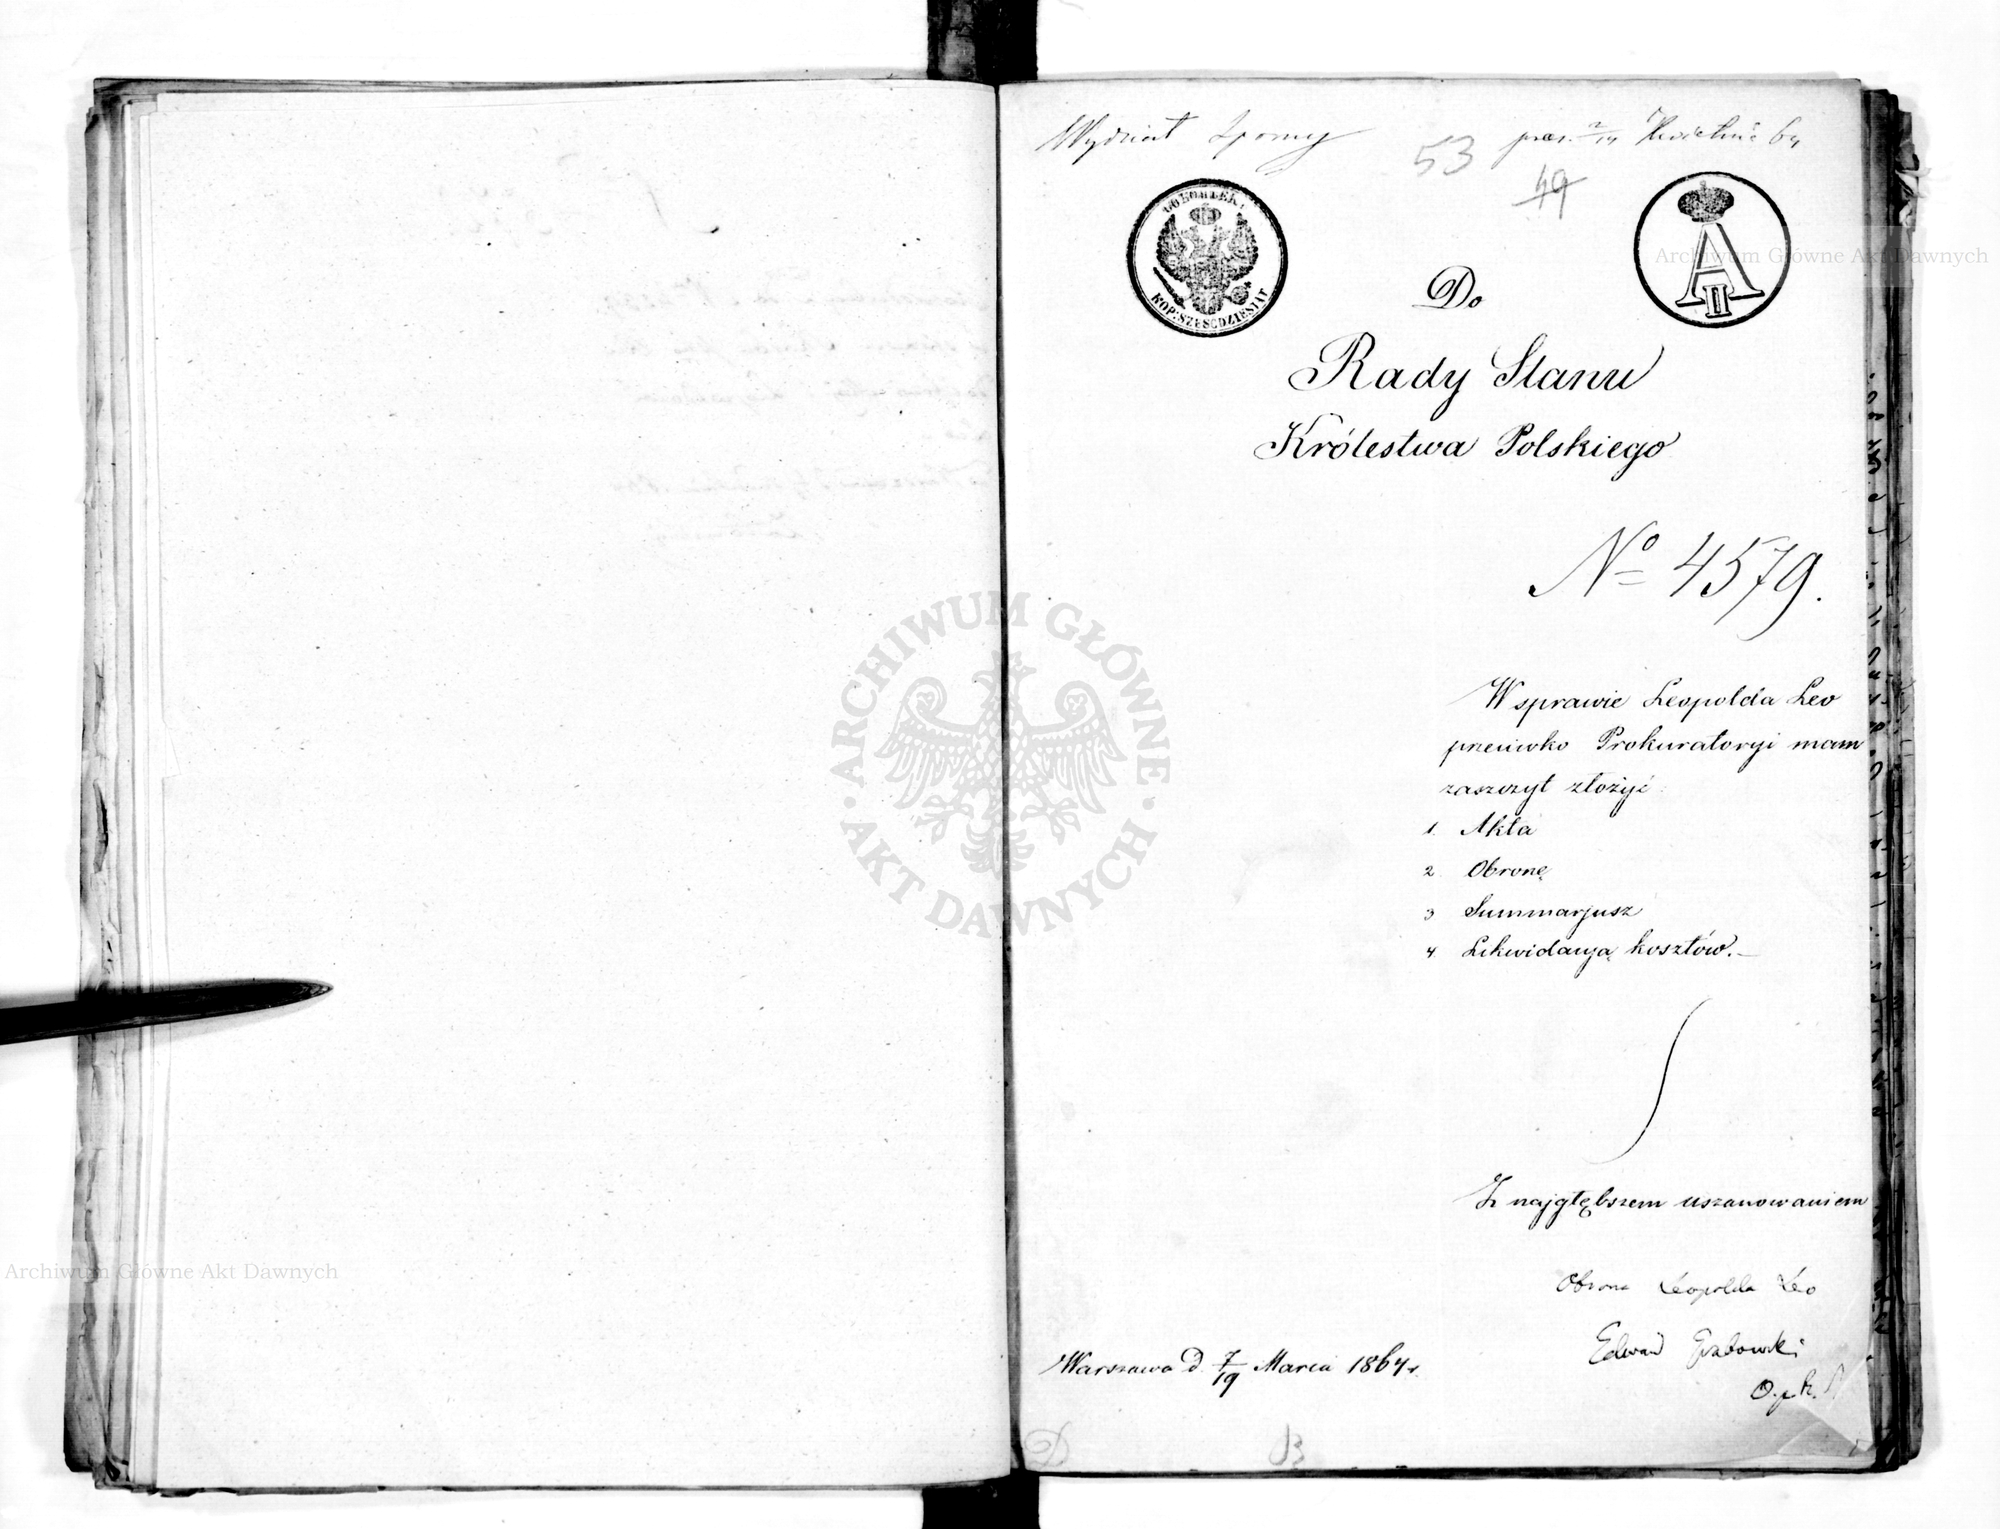 Wydział Sporny
53
pres. 2/14 Kwietnia 64
49
60 KOPIEK.
KOP: SZEŚĆDZIESIĄT
A II
Do
Rady Stanu
Królestwa Polskiego
No 4579.
W sprawie Leopolda Leo
przeciwko Prokuratoryi mam
zaszczyt złożyć:
1. Akta
2. Obronę
3 Summarjusz
4. Likwidacyą kosztów. –
Z najgłębszem uszanowaniem
Obrona Leopolda Leo
Edward Grabowski
Warszawa d. 7/19 Marca 1864 r.
B
ARCHIWUM GŁÓWNE AKT DAWNYCH
Archiwum Główne Akt Dawnych
Archiwum Główne Akt Dawnych